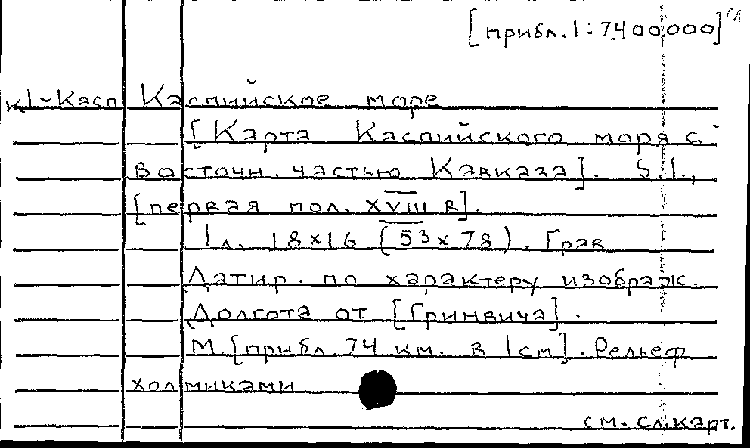 [прибл. 1:7400000]
К1-Касп Каспийское море
[Карта Каспийского моря с
восточн. частью Кавказа]. S.l.,
[первая пол. XVIII в].
1 л. 18х16 (53х78). Грав
Датир. по характеру изображ.
Долгота от [Гринвича].
М. [прибл. 74 км. в 1 см]. Рельеф
холмиками
см. сл. карт.